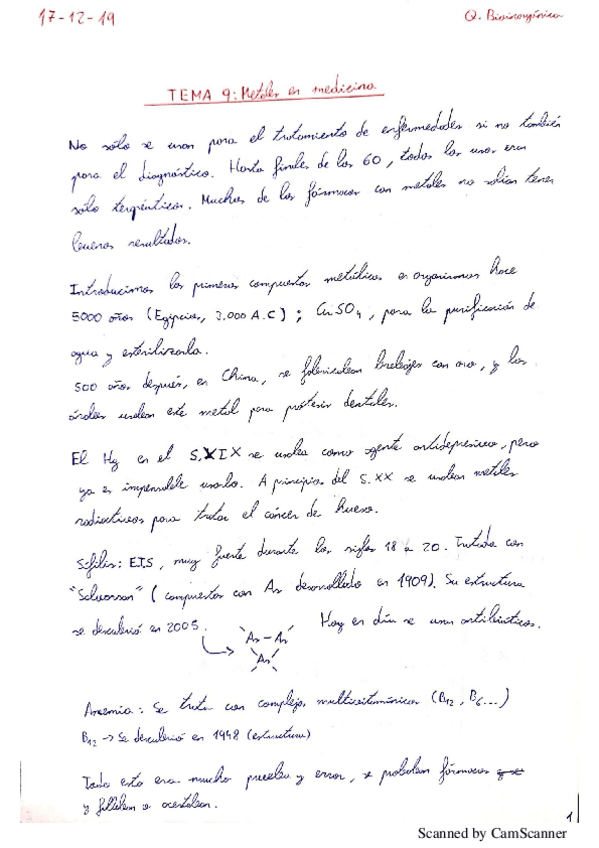 17-12-19
Q. Bioinorgánica
TEMA 9: Metales en medicina
No sólo se usan para el tratamiento de enfermedades si no también
para el diagnóstico. Hasta finales de los 60, todos los usos eran
sólo terapéuticos. Muchos de los fármacos con metales no solían tener
buenos resultados.
Introducimos los primeros compuestos metálicos en organismos hace
5000 años (Egipcios, 3.000 A.C); CuSO4, para la purificación de
agua y esterilizarla.
500 años después, en China, se fabricaban brebajes con oro, y los
árabes usaban este metal para prótesis dentales.
El Hg en el S.XIX se usaba como agente antidepresivo, pero
ya es impensable usarlo. A principios del S.XX se usaban metales
radiactivos para tratar el cáncer de hueso.
Sífilis: ETS, muy fuerte durante los siglos 18 a 20. Tratada con
"Salvarsan" (compuestos con As desarrollado en 1909). Su estructura
se descubrió en 2005.
Hoy en día se usan antibióticos.
As - As
As
Anemia: Se trata con complejos multivitamínicos (B12, B6...)
B12 → Se descubrió en 1948 (estructura)
Todo esto era mucho prueba y error, se probaban fármacos
y fallaban o acertaban.
1
Scanned by CamScanner